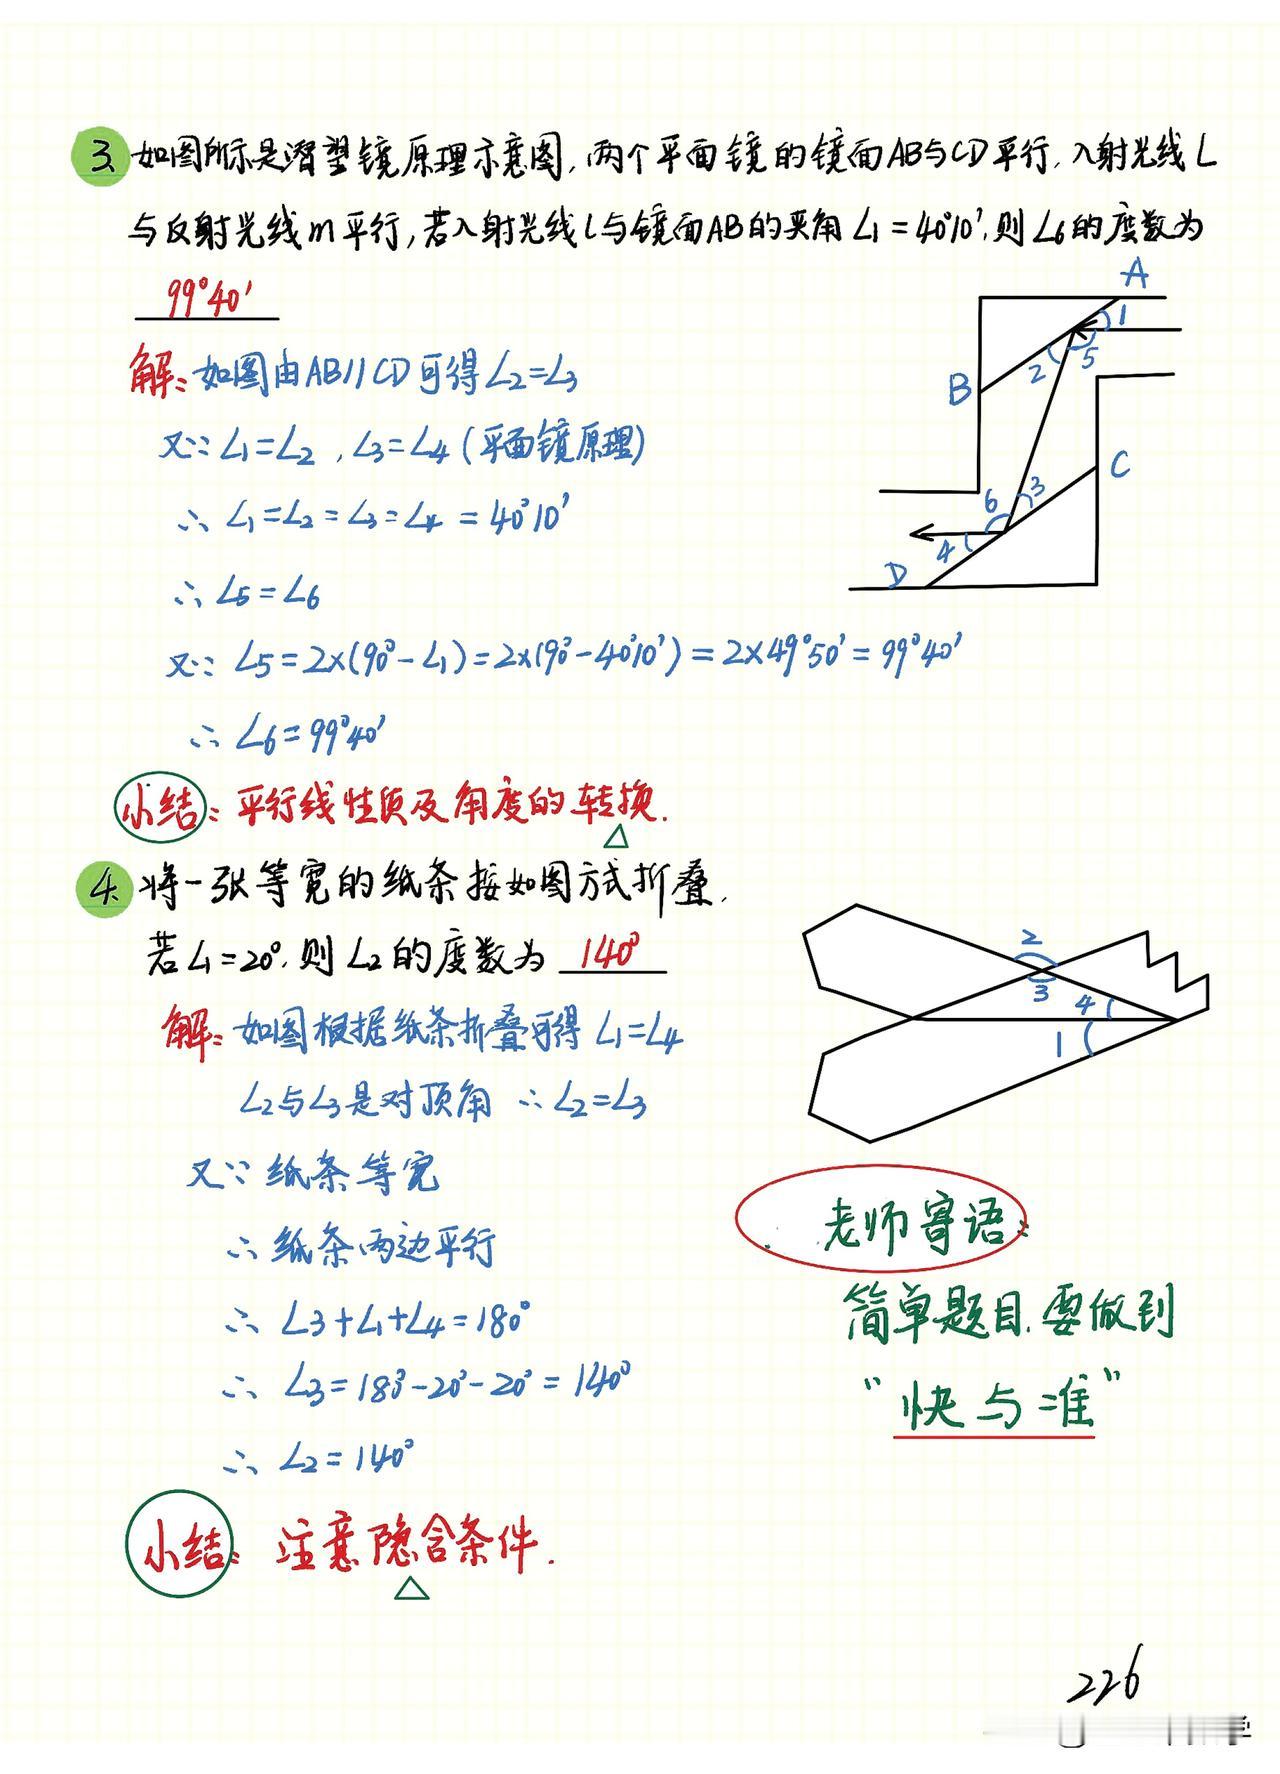 3. 如图所示是潜望镜原理示意图,两个平面镜的镜面AB与CD平行,入射光线L
与反射光线m平行,若入射光线l与镜面AB的夹角∠1=40°10′,则∠6的度数为
99°40′
解:如图由AB//CD可得∠2=∠3
又∵∠1=∠2,∠3=∠4(平面镜原理)
∴ ∠1=∠2=∠3=∠4=40°10′
∴ ∠5=∠6
又∵ ∠5=2×(90°-∠1)=2×(90°-40°10′)=2×49°50′=99°40′
∴ ∠6=99°40′
A
1
5
2
B
C
3
6
4
D
小结:平行线性质及角度的转换.
4. 将一张等宽的纸条按如图方式折叠.
若∠1=20°,则∠2的度数为 140°
解:如图根据纸条折叠可得 ∠1=∠4
∠2与∠3是对顶角 ∴∠2=∠3
又∵ 纸条等宽
∴ 纸条两边平行
∴ ∠3+∠1+∠4=180°
∴ ∠3=180°-20°-20°=140°
∴ ∠2=140°
2
3
4
1
老师寄语:
简单题目.要做到
“快与准”
小结:注意隐含条件.
226